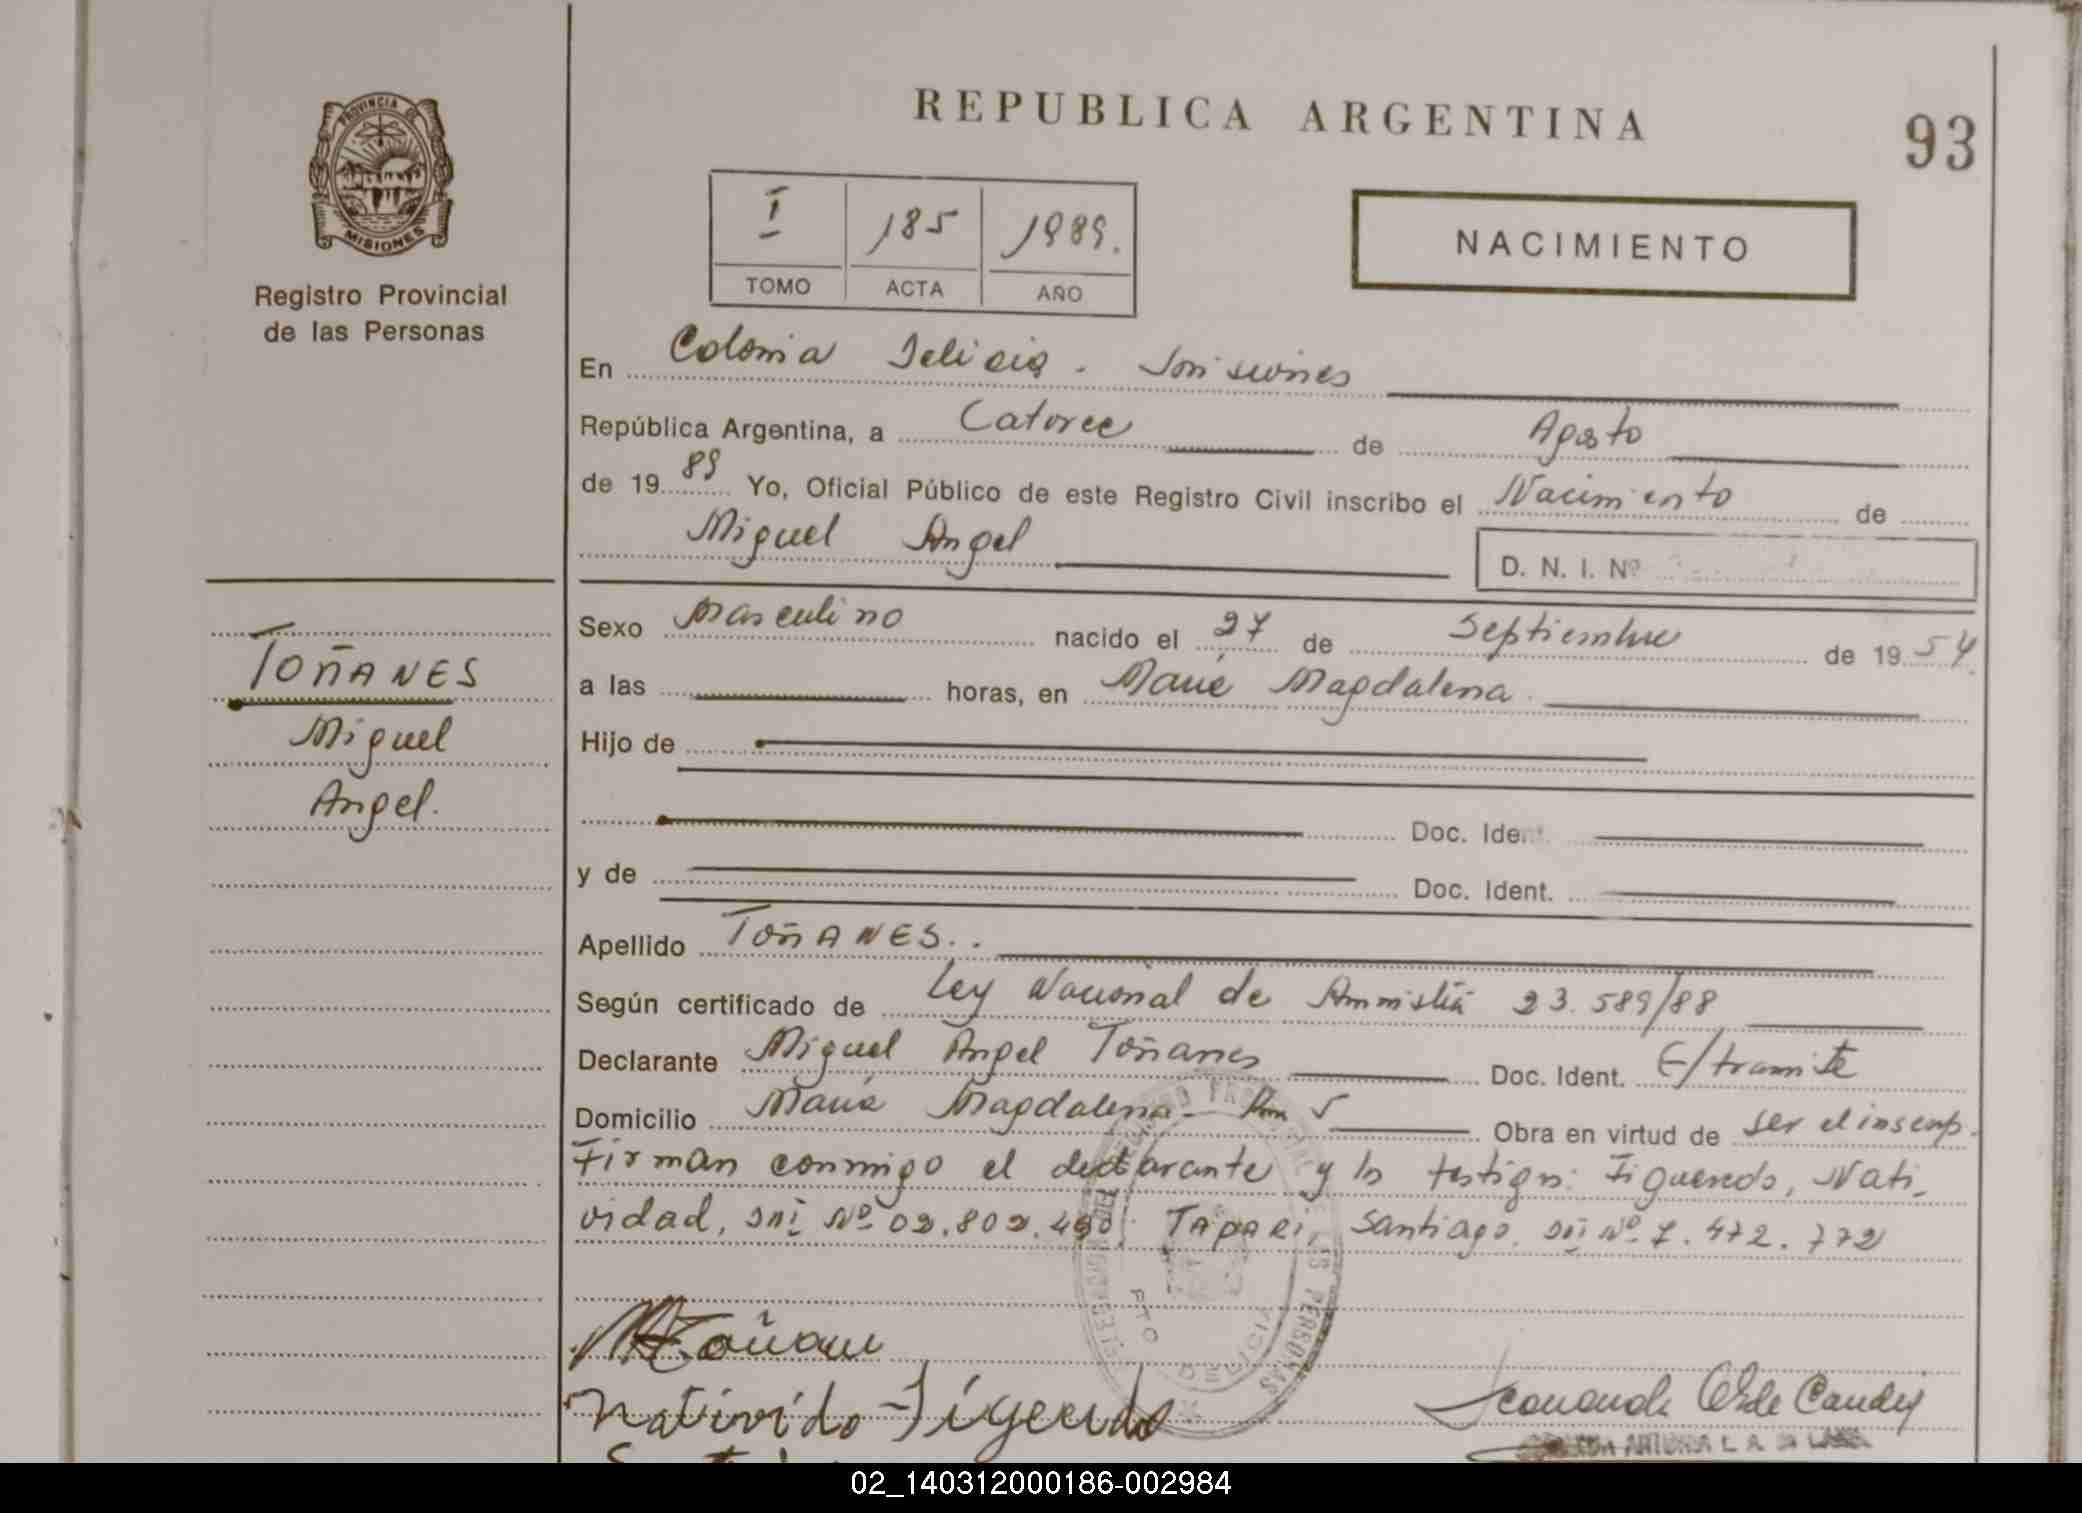 PROVINCIA DE
MISIONES
Registro Provincial
de las Personas
REPUBLICA ARGENTINA
93
I 185 1989.
TOMO ACTA AÑO
NACIMIENTO
En Colonia Delicia - Misiones
República Argentina, a Catorce de Agosto
de 1989 Yo, Oficial Público de este Registro Civil inscribo el Nacimiento de
Miguel Angel
D. N. I. Nº
Sexo Masculino nacido el 27 de Septiembre de 1954
a las horas, en María Magdalena
Hijo de
Doc. Ident.
y de Doc. Ident.
Apellido TOÑANES..
Según certificado de Ley Nacional de Amnistía 23.589/88
Declarante Miguel Angel Toñanes Doc. Ident. E/tramite
Domicilio María Magdalena - Km 5 Obra en virtud de ser el inscrip.
Firman conmigo el declarante y los testigos: Figueredo, Nati-
vidad, DNI Nº 02.802.490. TAPARI, Santiago. DNI Nº 7.472.772
TOÑANES
Miguel
Angel.
PTO DELICIA
Nativido Figeredo
02_140312000186-002984